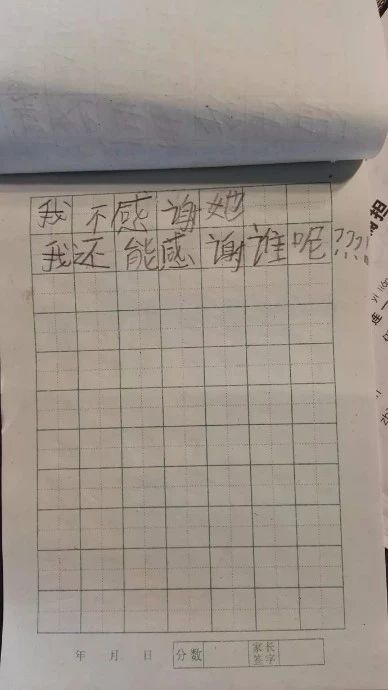 我不感谢她
我还能感谢谁呢???!
年 月 日 分数 家长签字